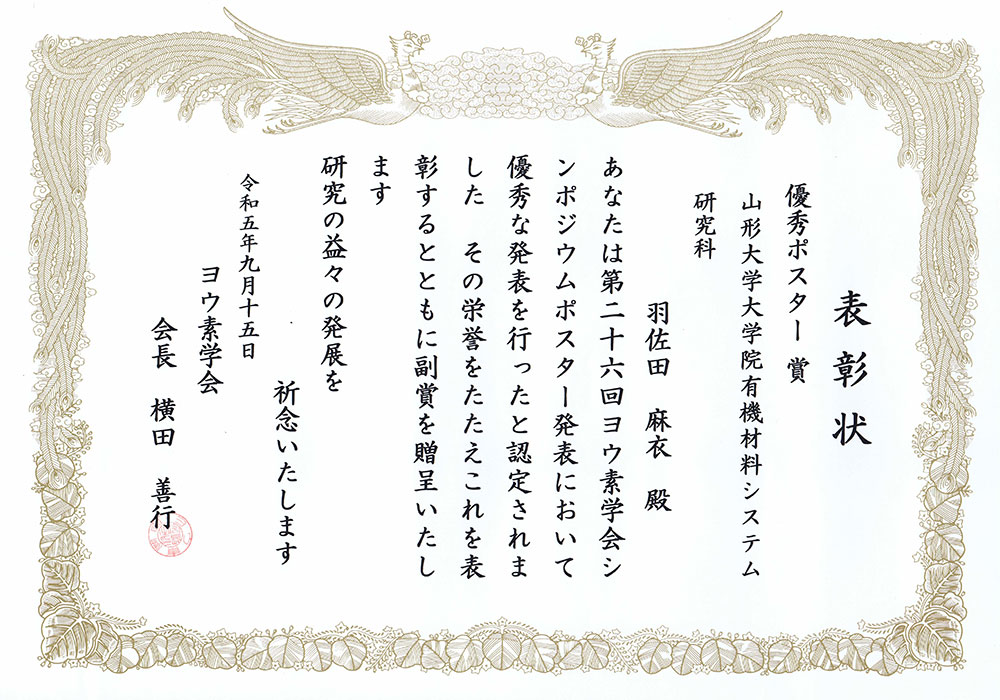 表彰状
優秀ポスター賞
山形大学大学院有機材料システム
研究科
羽佐田 麻衣 殿
あなたは第二十六回ヨウ素学会シ
ンポジウムポスター発表において
優秀な発表を行ったと認定されま
した その栄誉をたたえこれを表
彰するとともに副賞を贈呈いたし
ます
研究の益々の発展を
祈念いたします
令和五年九月十五日
ヨウ素学会
会長 横田 善行